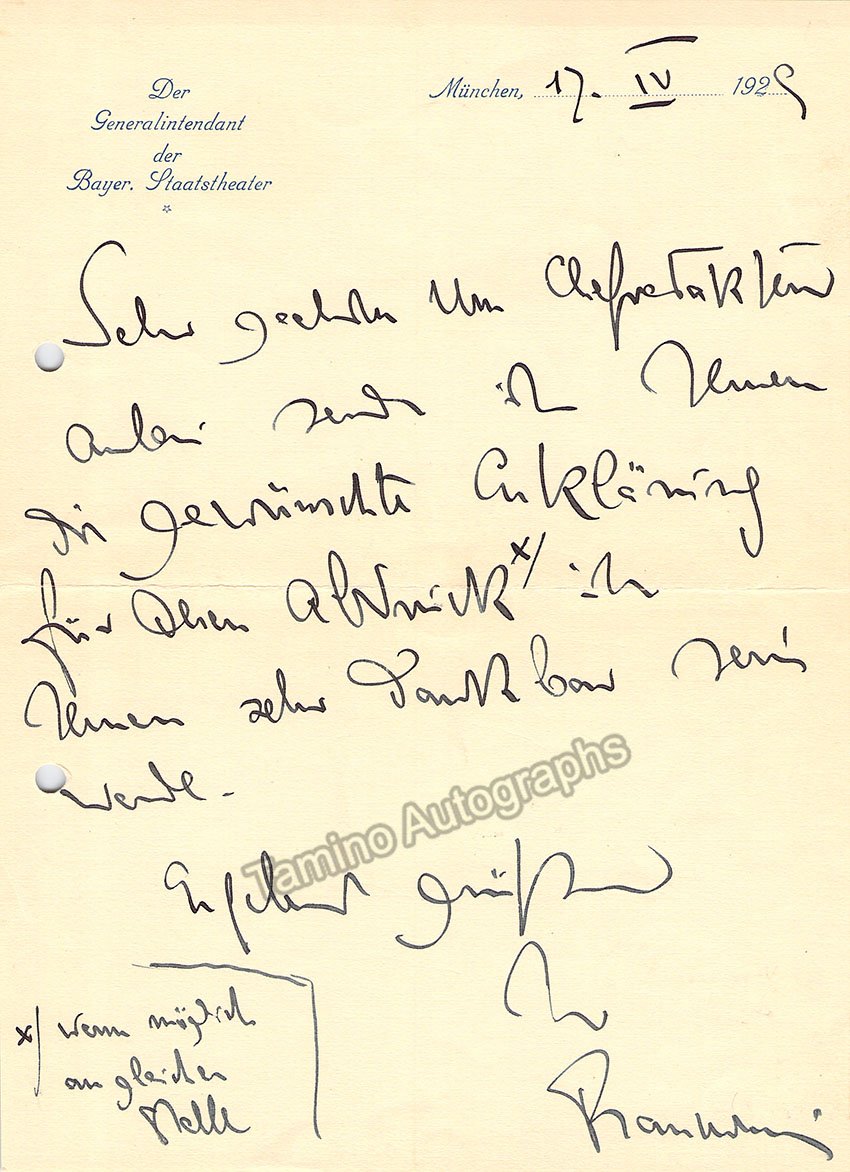 Der
Generalintendant
der
Bayer. Staatstheater
München, 17. IV 1929
Sehr geehrter Herr Chefredakteur
anbei sende ich Ihnen
die gewünschte Erklärung
für deren Abdruck x/ ich
Ihnen sehr dankbar sein
werde.
Ergebenst grüßend
Ihr
Franckenstein
x/ wenn möglich
an gleicher
Stelle
Tamino Autographs